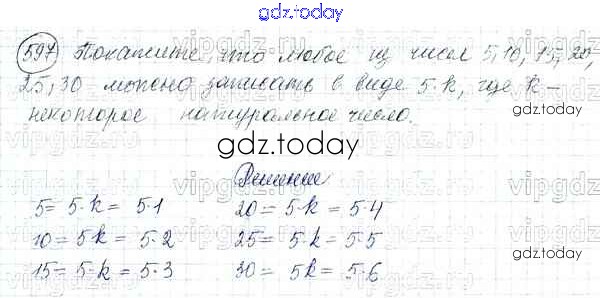 gdz.today
597 Покажите, что любое из чисел 5, 10, 15, 20,
25, 30 можно записать в виде 5·k, где k –
некоторое натуральное число.
gdz.today
Решение
5 = 5·k = 5·1 20 = 5·k = 5·4
10 = 5k = 5·2 25 = 5·k = 5·5
15 = 5·k = 5·3 30 = 5k = 5·6
gdz.today